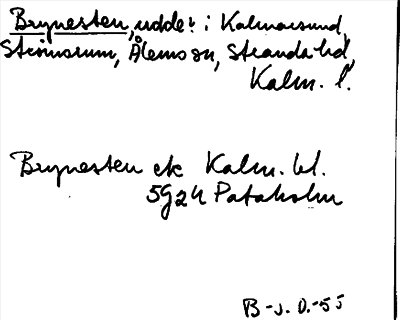 Brynesten, udde i Kalmarsund,
Strömsrum, Ålems sn, Stranda hd,
Kalm. l.
Brynesten ek Kalm. bl.
5924 Pataholm
B-J. O.-55